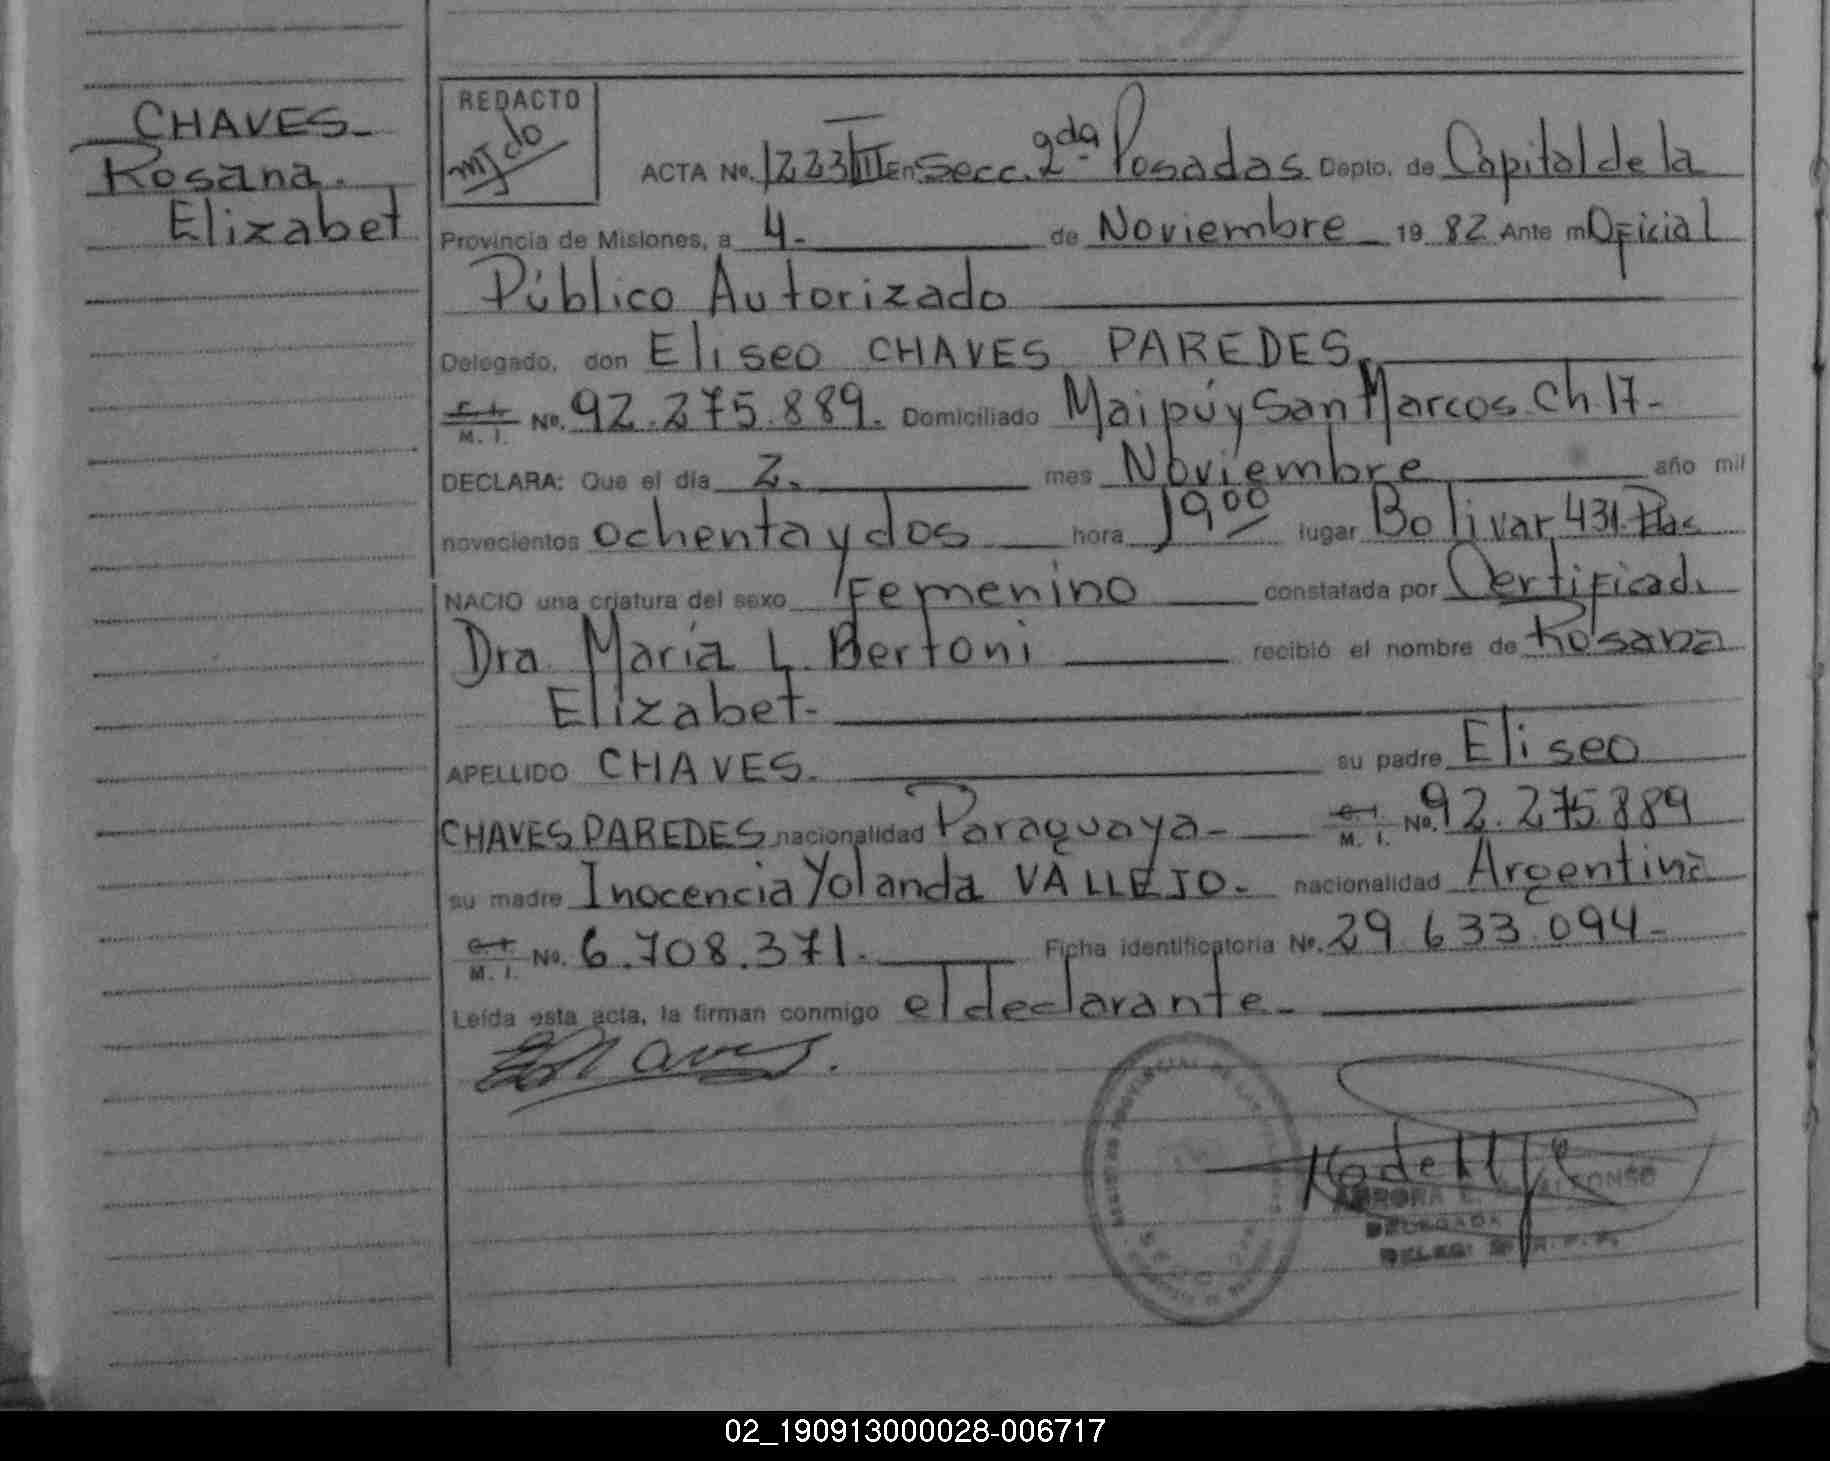 CHAVES
Rosana
Elizabet
REDACTO
ACTA No. 1223 III En Secc. 2da Posadas Depto. de Capital de la
Provincia de Misiones, a 4.- de Noviembre 19 82 Ante m Oficial
Público Autorizado
Delegado, don Eliseo CHAVES PAREDES,
C. I. M. I. No. 92.275.889. Domiciliado Maipú y San Marcos Ch. 17-
DECLARA: Que el día 2.- mes Noviembre año mil
novecientos ochenta y dos hora 19 00 lugar Bolivar 431. Pdas
NACIO una criatura del sexo Femenino constatada por Certificad.
Dra. María L. Bertoni recibió el nombre de Rosana
Elizabet-
APELLIDO CHAVES. su padre Eliseo
CHAVES PAREDES nacionalidad Paraguaya- C. I. M. I. No. 92.275.889
su madre Inocencia Yolanda VALLEJO.- nacionalidad Argentina
C. I. M. I. No. 6.708.371.- Ficha identificatoria No. 29.633.094-
Leída esta acta, la firman conmigo el declarante.-
DELEGADA
02_190913000028-006717